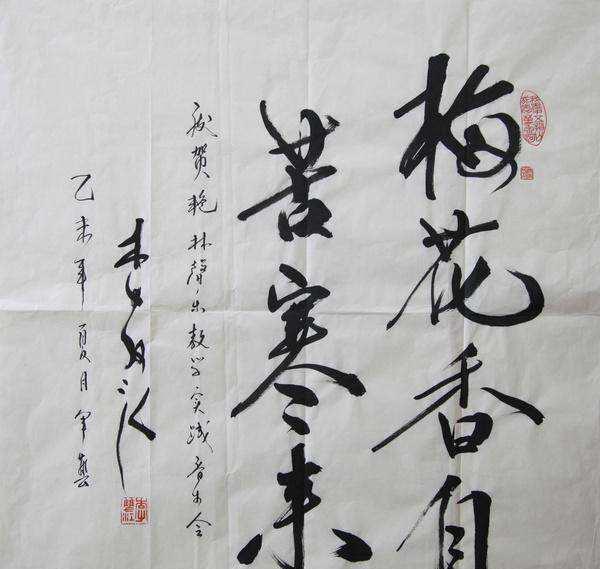 梅花香自
苦寒来
祝贺艳林声乐教学实践音乐会
李双江
乙未年夏月军艺